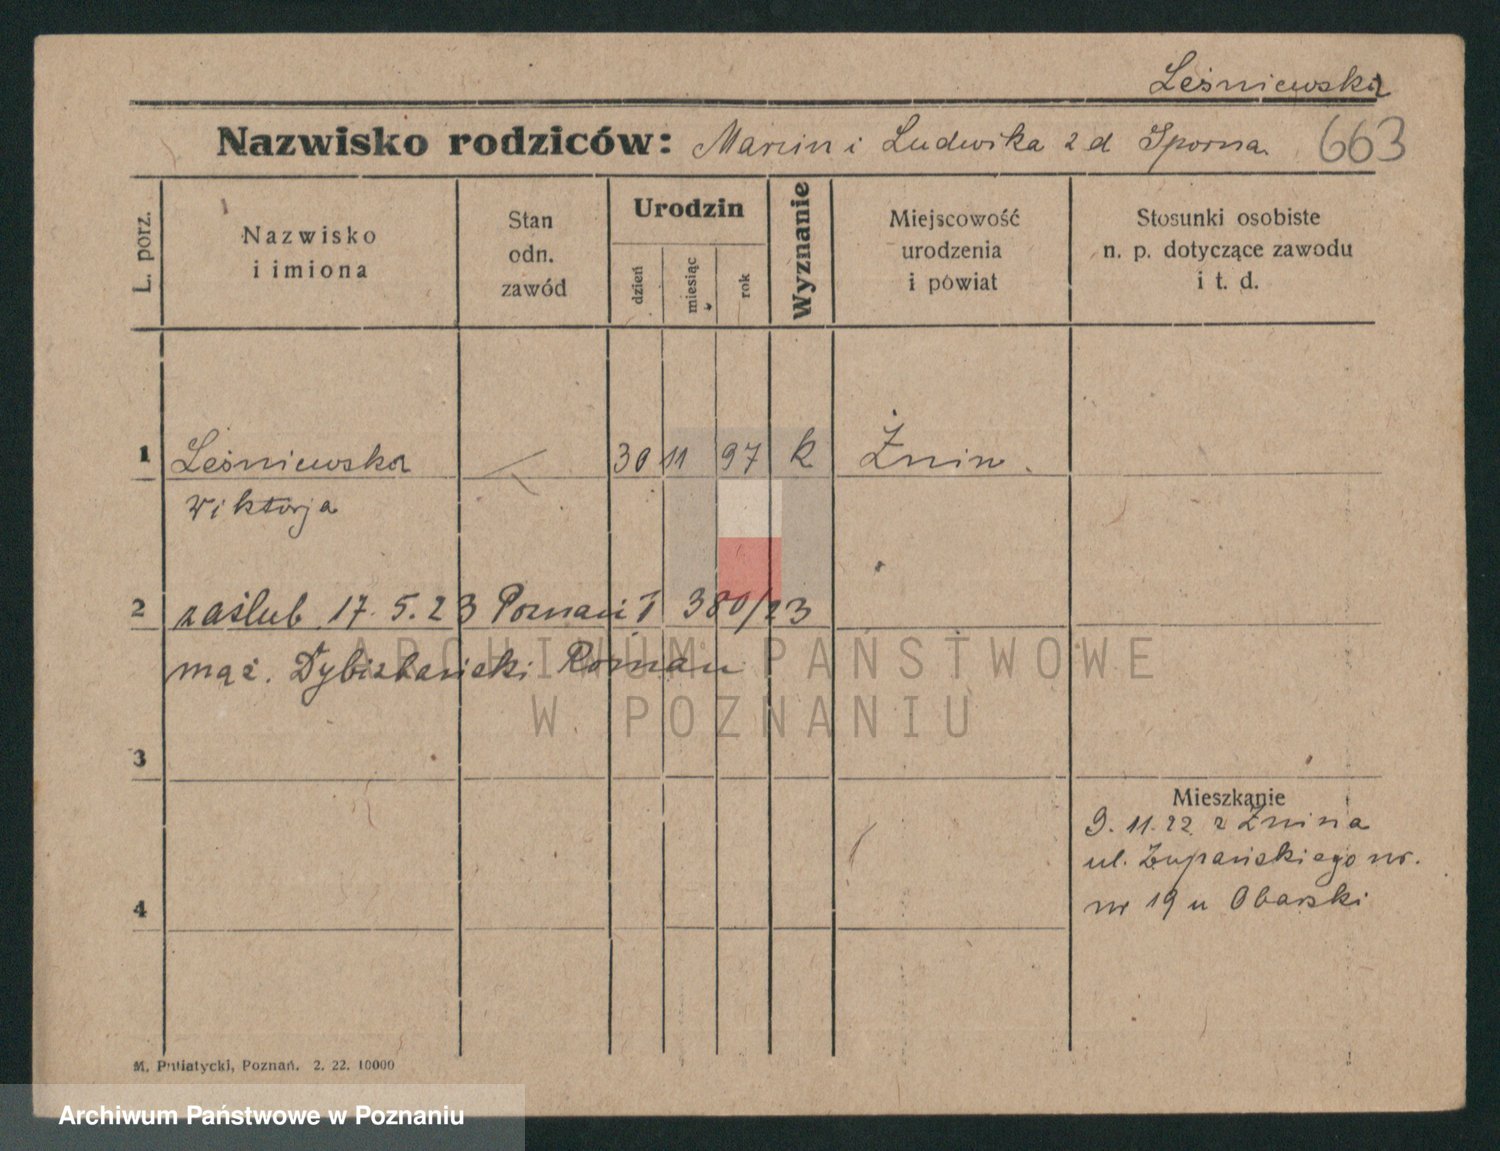 Leśniewska
Nazwisko rodziców: Marcin i Ludwika z d Sporna.
663
L. porz.
Nazwisko
i imiona
Stan
odn.
zawód
Urodzin
dzień
miesiąc
rok
Wyznanie
Miejscowość
urodzenia
i powiat
Stosunki osobiste
n. p. dotyczące zawodu
i t. d.
1 Leśniewska 30 11 97 k Żnin.
Wiktorja
2 zaślub. 17. 5. 23 Poznań I 380/23
mąż. Roman
ARCHIWUM PAŃSTWOWE
W POZNANIU
3
Mieszkanie
9. 11. 22 z Żnina
ul. Żupańskiego nr.
4
nr 19 u Obarski
M. Putiatycki, Poznań. 2. 22. 10000
Archiwum Państwowe w Poznaniu